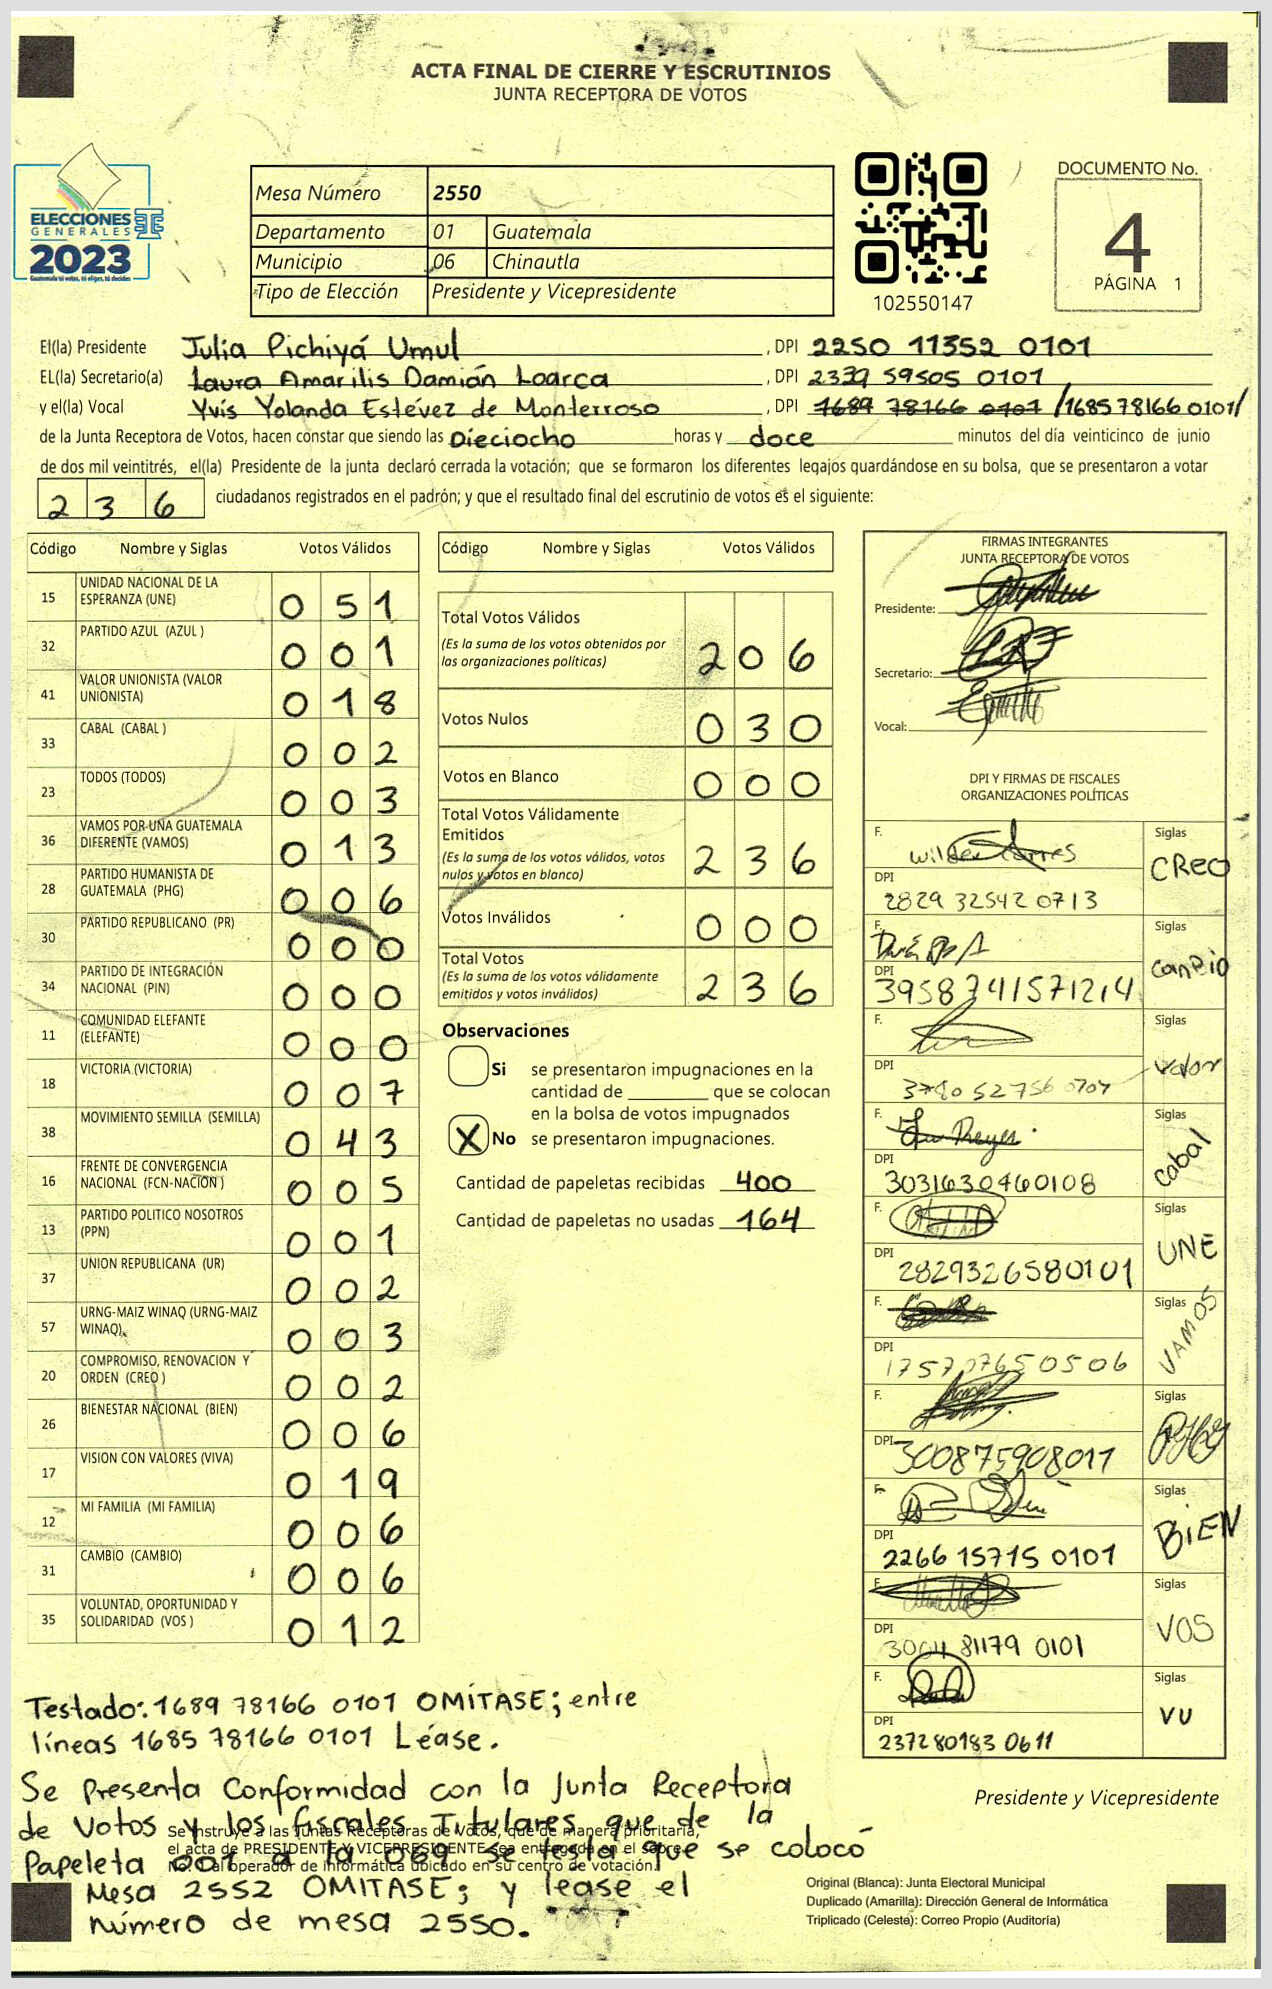 ACTA FINAL DE CIERRE Y ESCRUTINIOS
JUNTA RECEPTORA DE VOTOS
ELECCIONES
GENERALES
2023
Guatemala tú votas, tú eliges, tú decides
Mesa Número 2550
Departamento 01 Guatemala
Municipio 06 Chinautla
Tipo de Elección Presidente y Vicepresidente
102550147
DOCUMENTO No.
4
PÁGINA 1
El(la) Presidente Julia Pichiyá Umul , DPI 2250 11352 0101
EL(la) Secretario(a) Laura Amarilis Damián Loarca , DPI 2339 59505 0101
y el(la) Vocal Yvis Yolanda Estévez de Monterroso , DPI 1689 78166 0101 /1685 78166 0101/
de la Junta Receptora de Votos, hacen constar que siendo las Dieciocho horas y doce minutos del día veinticinco de junio
de dos mil veintitrés, el(la) Presidente de la junta declaró cerrada la votación; que se formaron los diferentes legajos quardándose en su bolsa, que se presentaron a votar
236 ciudadanos registrados en el padrón; y que el resultado final del escrutinio de votos es el siguiente:
Código Nombre y Siglas Votos Válidos
15 UNIDAD NACIONAL DE LA ESPERANZA (UNE) 051
32 PARTIDO AZUL (AZUL ) 001
41 VALOR UNIONISTA (VALOR UNIONISTA) 018
33 CABAL (CABAL ) 002
23 TODOS (TODOS) 003
36 VAMOS POR UNA GUATEMALA DIFERENTE (VAMOS) 013
28 PARTIDO HUMANISTA DE GUATEMALA (PHG) 006
30 PARTIDO REPUBLICANO (PR) 000
34 PARTIDO DE INTEGRACIÓN NACIONAL (PIN) 000
11 COMUNIDAD ELEFANTE (ELEFANTE) 000
18 VICTORIA (VICTORIA) 007
38 MOVIMIENTO SEMILLA (SEMILLA) 043
16 FRENTE DE CONVERGENCIA NACIONAL (FCN-NACION ) 005
13 PARTIDO POLITICO NOSOTROS (PPN) 001
37 UNION REPUBLICANA (UR) 002
57 URNG-MAIZ WINAQ (URNG-MAIZ WINAQ) 003
20 COMPROMISO, RENOVACION Y ORDEN (CREO ) 002
26 BIENESTAR NACIONAL (BIEN) 006
17 VISION CON VALORES (VIVA) 019
12 MI FAMILIA (MI FAMILIA) 006
31 CAMBIO (CAMBIO) 006
35 VOLUNTAD, OPORTUNIDAD Y SOLIDARIDAD (VOS ) 012
Código Nombre y Siglas Votos Válidos
Total Votos Válidos 206
(Es la suma de los votos obtenidos por
las organizaciones políticas)
Votos Nulos 030
Votos en Blanco 000
Total Votos Válidamente
Emitidos 236
(Es la suma de los votos válidos, votos
nulos y votos en blanco)
Votos Inválidos 000
Total Votos 236
(Es la suma de los votos válidamente
emitidos y votos inválidos)
Observaciones
Si se presentaron impugnaciones en la
cantidad de ________ que se colocan
en la bolsa de votos impugnados
X No se presentaron impugnaciones.
Cantidad de papeletas recibidas 400
Cantidad de papeletas no usadas 164
FIRMAS INTEGRANTES
JUNTA RECEPTORA DE VOTOS
Presidente:
Secretario:
Vocal:
DPI Y FIRMAS DE FISCALES
ORGANIZACIONES POLÍTICAS
F. Siglas CREO
DPI 2829 32542 0713
F. Siglas CAMBIO
DPI 3958741571214
F. Siglas Valor
DPI
F. Reyes Siglas cabal
DPI 3031630460108
F. Siglas UNE
DPI 2829326580101
F. Siglas VAMOS
DPI 1757076500506
F. Siglas
DPI 300875908011
F. Siglas BIEN
DPI 2266 15715 0101
F. Siglas VOS
DPI 3004 81179 0101
F. Siglas VU
DPI 237280183 0611
Testado: 1689 78166 0101 OMÍTASE; entre
líneas 1685 78166 0101 Léase.
Se Presenta Conformidad con la Junta Receptora
de Votos y los fiscales Titulares que de la
Papeleta 001 a la 089 se testa que se colocó
Mesa 2552 OMITASE; y lease el
número de mesa 2550.
Se instruye a las Juntas Receptoras de Votos, que de manera prioritaria,
el acta de PRESIDENTE Y VICEPRESIDENTE sea entregada en el sobre
No. 2 al operador de informática ubicado en su centro de votación.
Presidente y Vicepresidente
Original (Blanca): Junta Electoral Municipal
Duplicado (Amarilla): Dirección General de Informática
Triplicado (Celeste): Correo Propio (Auditoría)